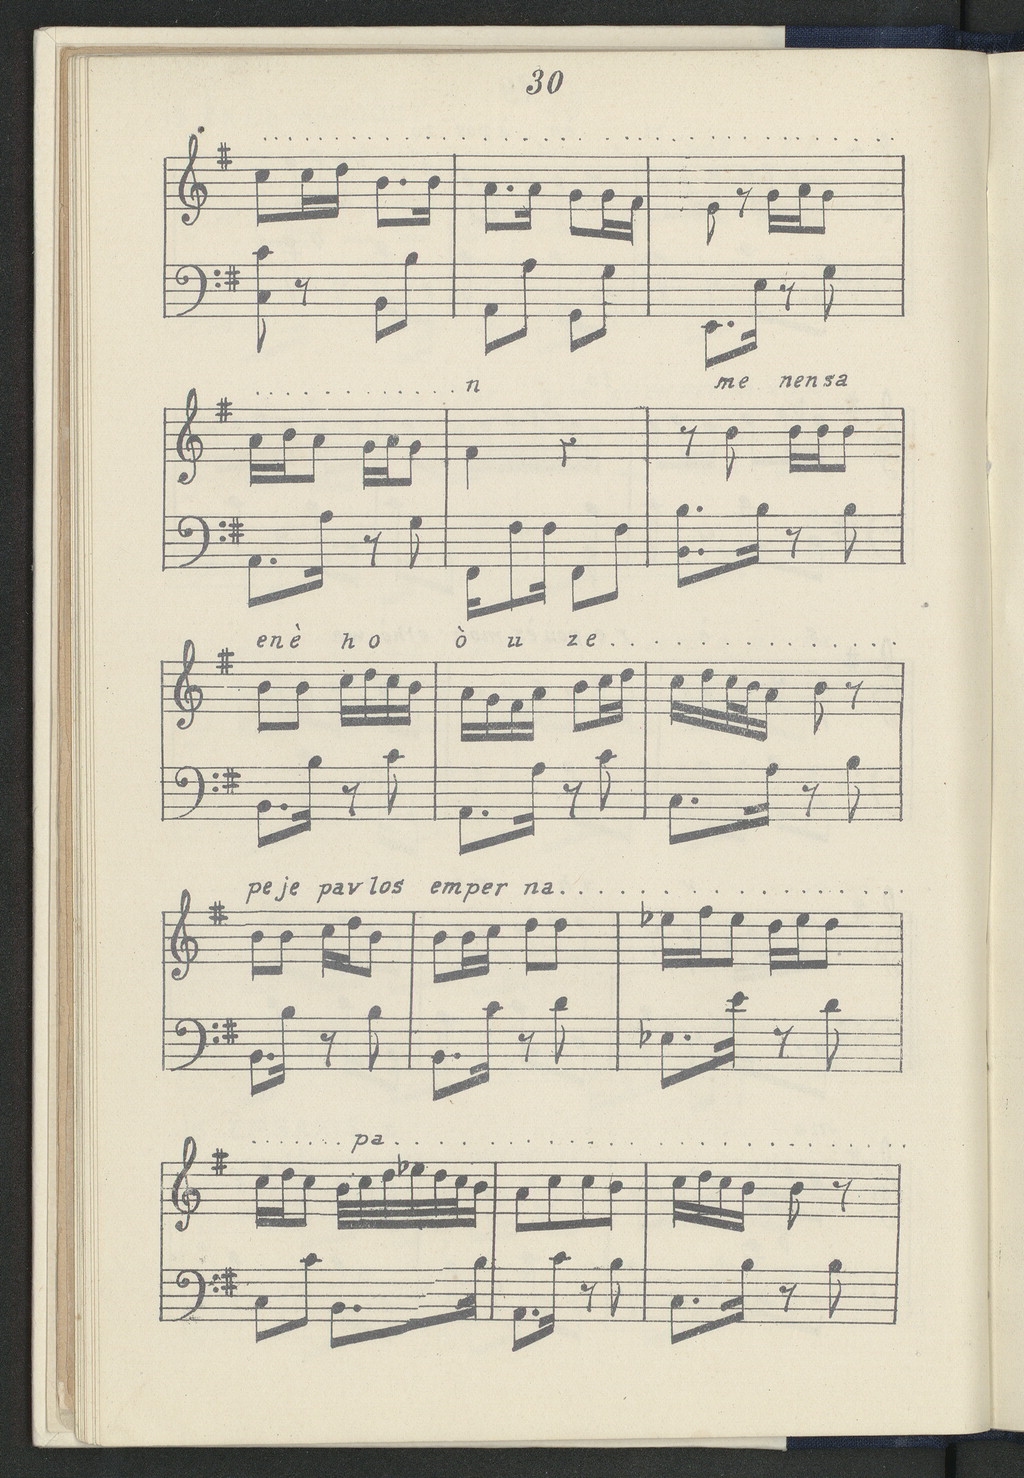 30
. . . . . . . . . . . . . . . . . . . . . . . . . . . . . . . . . . .
. . . . . . . . . . . . n me nensa
enè ho ò u ze. . . . . . . . . . . . . .
peje pavlos emper na. . . . . . . . . . . . . . . . . .
. . . . . . . pa. . . . . . . . . . . . . . . . . . . . . . .